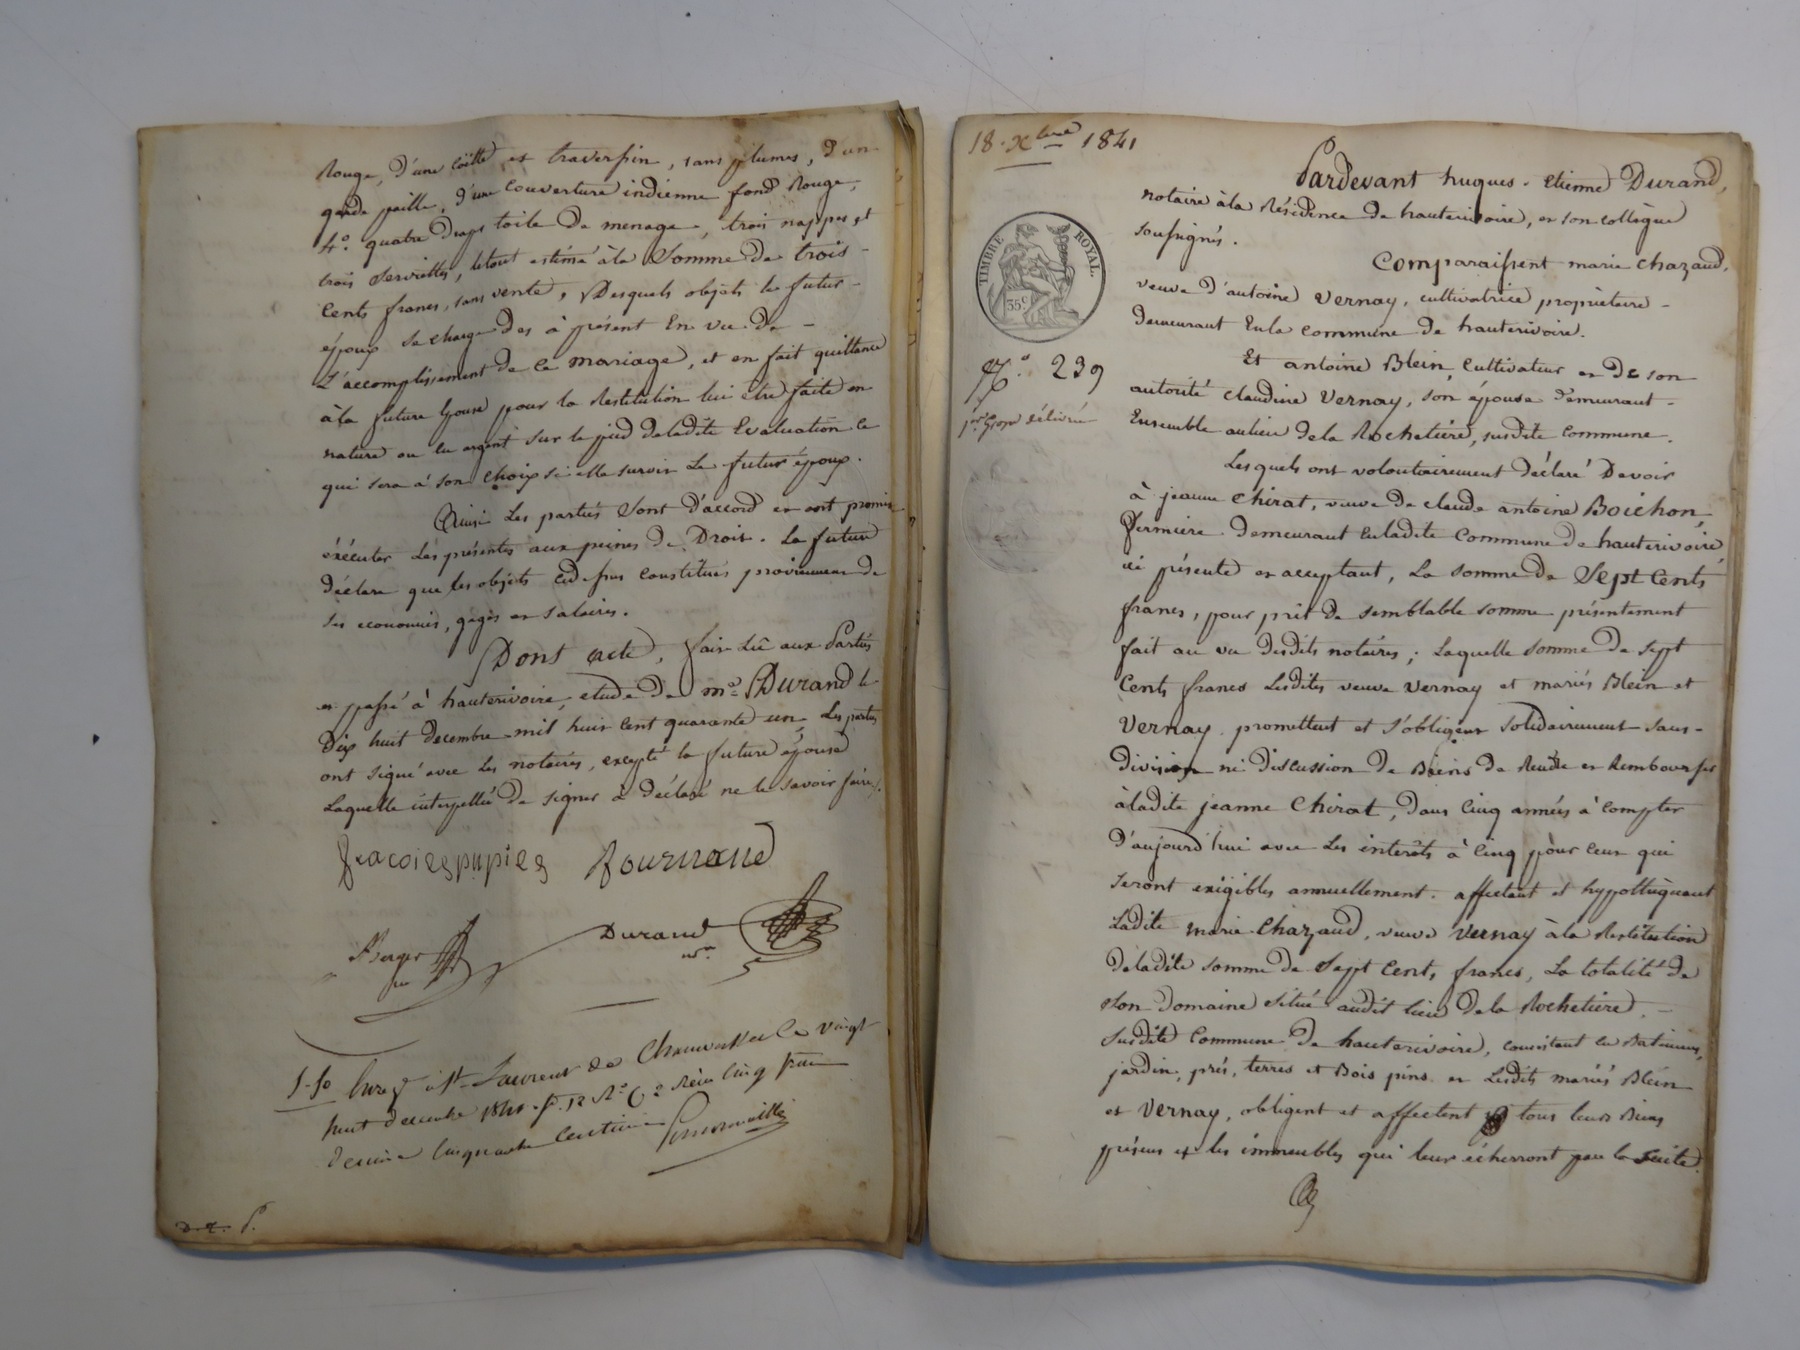 Rouge, D'une coëtte et traversin, sans plumes, D'un
garde paille, d'une couverture indienne fond Rouge,
4.° quatre Draps toile De menage, trois nappes et
trois Serviettes, letout estimé àla Somme De trois -
Cents francs, sans vente, Desquels objets le futur -
époux Se charge Des à présent En vue De -
L'accomplissement De Ce mariage, et en fait quittance
àla future Epouse pour la Restitution lui être faite en
nature ou en argent Sur le pied deladite Evaluation ce
qui sera à son choix si elle survit Le futur époux.
Ainsi Les parties Sont D'accord et ont promis
éxécuter Les présentes aux peines De Droit. La future
Déclare que les objets cidessus Constitués proviennent De
Ses economies, gages et salaires.
Dont acte, fait Lû aux Parties
et passé à hauterivoire, etude De me Durand le
Dix huit decembre mil huit cent quarante un, Les parties
ont signé avec Les notaires, excepté la future épouse
Laquelle interpellée De signer a Déclaré ne le Savoir faire/.
fournand
Durand
nre.
5-50 Enregé à St Laurent de Chamousset le vingt
huit decembre 1841. f° 12 R° C 2 Reçu Cinq francs
decime Cinquante Centimes
18. Xbre 1841
Pardevant hugues-Etienne Durand,
notaire àla Résidence de hauterivoire, et son collègue
soussignés.
Comparaissent marie Chazaud,
veuve D'antoine Vernay, cultivatrice propriétaire -
Demeurant Enla commune De hauterivoire.
TIMBRE ROYAL.
35c
N.° 239
pre Grosse Délivrée
Et antoine Blein, Cultivateur et De son
autorité claudine Vernay, son épouse Demeurant -
Ensemble aulieu Dela Rochetière, susdite Commune.
Lesquels ont volontairement Déclaré Devoir
à jeanne Chirat, veuve De claude antoine Boichon,
fermière Demeurant Enladite Commune De hauterivoire
ici présente et acceptant, La Somme De Sept Cents
francs, pour prêt De Semblable Somme présentement
fait au vu Desdits notaires; Laquelle Somme De Sept
Cents francs Lesdites veuve Vernay et mariés Blein et
Vernay promettent et S'obligent Solidairement Sans -
division ni Discussion De Biens De Rendre et Rembourser
àladite jeanne Chirat, Dans Cinq années à Compter
D'aujourd'hui avec Les interêts à Cinq pour Cent qui
Seront exigibles annuellement. affectant et hypothéquant
Ladite marie Chazaud, veuve Vernay àla Restitution
Deladite Somme De Sept Cents francs, La totalité De
Son Domaine Situé audit lieu Dela Rochetière, -
Susdite Commune De hauterivoire, Consistant en Batimens,
jardin, prés, terres et Bois pins et Lesdits mariés Blein
et Vernay, obligent et affectent tous leurs Biens
présens et les immeubles qui leur écherront par la Suite.